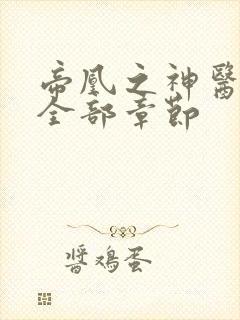 帝凰之神醫
全部章節
醬鳮蛋